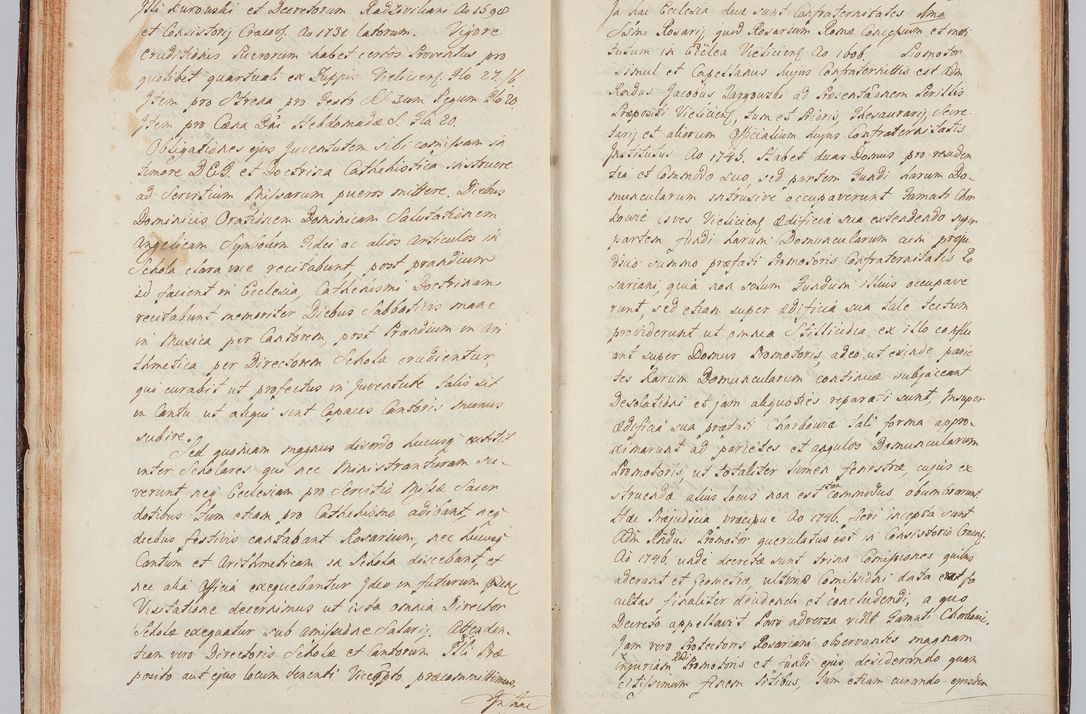 et Decretorum Radzoviliani Ao 1598
et Consistorij Cracov. Ao 1731 Latorum. Vigore
Eruditionis Puerorum habet certos Proventus pro
quolibet quartuali ex Zuppis Vielicens. flo 27.
Jtem pro Strena pro Festo S. 3um Regum flo 20
Jtem pro Cæna Dni Hebdomadæ S. flo 20.
Obligationes ejus Juventutem sibi comissam in
timore D.E.B. et Doctrina Cathechistica instruere
ad Servitium Missarum pueros mittere, Diebus
Dominicis Orationem Dominicam Salutationem
Angelicam Symbolum Fidei ac alios Articulos in
Schola clara voce recitabunt, post prandium
id facient in Ecclesia, Cathechismi Doctrinam
recitabunt memoriter Diebus Sabbativis mane
in Musica per Cantorem, post Prandium in Ari
thmetica per Directorem Scholæ erudientur,
qui curabit ut profectus in Juventute talis sit
in Cantu ut aliqui sint Capaces Cantoris munus
subire.
Sed quoniam magnus discordo hucusq existit
inter Scholares qui nec Ministranturam sci-
verunt neq Ecclesiam pro Servitio Missæ Sacer
dotibus tum etiam pro Cathechismo adibant, neq
diebus festivis cantabant Rosarium, nec hucusq
Cantum et Arithmeticam in Schola discebant, et
nec alia Officia exequebantur Jdeo in futurum
Visitatione decernimus ut ista omnia Director
Scholæ exequatur sub amissione Salarij. Attenden-
tiam vero Directoris Scholæ et Cantorum Præ
posito aut ejus locum tenenti Viceppto præcommittimus.
Jn hac
Jn hac Ecclesia duæ sunt Confraternitates 1ma
SSmi Rosarij, quod Rosarium Roma Conceptum et insti
tutum in Ecclea Vieliciens Ao 1606. Promotor
simul et Capellanus hujus Confraternittis est Adm
Rndus Jacobus Zargowski ad Præsentaõnem Perillis
Præpositi Vieliciens, tum et Prioris, Thesaurarij, Secre-
tarij et aliorum Officialium hujus Confraternitatis
Jnstitutus Ao 1745. Habet duas Domus pro residen
tia et Commodo suo, sed partem Fundi harum Do-
muncularum intrusive occupaverunt Famati Chor
dowie Cives Vieliciens Ædificia sua extendendo super
partem fundi harum Domuncularum cum præju
dicio summo præfati Promotoris Confraternitatis Ro
sariani, quia non solum Fundum illius occupave
runt, sed etiam super ædificia sua tale tectum
providerunt ut omnia Stillicidia ex illo conflu
ant super Domus Promotoris, adeo ut exinde parie
tes harum Domuncularum continuæ subjaceant
Desolationi et jam aliquoties reparati sunt, Jnsuper
Ædificia sua præfati Chordowie tali forma appro-
ximarunt ad parietes et angulos Domuncularum
Promotoris ut totaliter lumen fenestræ, cujus ex
struendæ alius locus non est tam commodus obumbrarunt
Hæc Præjudicia præcipue Ao 1746. fieri incepta sunt
Adm Rndus Promotor querulatus est in Consistorio Cracov.
Ao 1746. unde decretæ sunt trina Comissiones quibus
aderant et Geometræ ultimæ Comissioni data erat fa
cultas finaliter decidendi et concludendi, a quo
Decreto appellavit Pars adversa vidlt Famati Chordowie.
Jam vero Protectores Rosariani observantes magnam
injuriam Promotoris et fundi ejus desiderando quam
citissimum finem litibus, tum etiam curando ejusdem